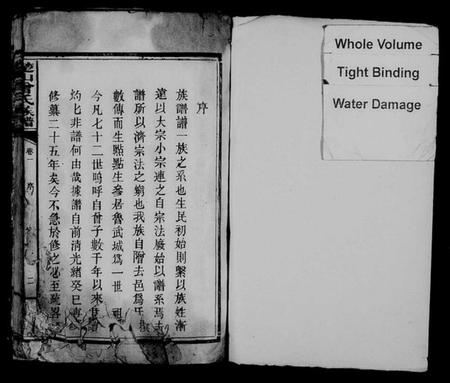 序
族譜譜一族之系也生民初始則繫以族姓漸
遠以大宗小宗連之自宗法廢始以譜系焉
譜所以濟宗法之窮也我族自鄫去邑爲氏
數傳而生點點生參居魯武城爲一世祖
今凡七十二世嗚呼自曾子數千年以來
灼七非譜何由哉據譜自前清光緒癸巳
修纂二十五年矣今不急於修之必至疏畧
氏
譜
卷一
序
Whole Volume
Tight Binding
Water Damage